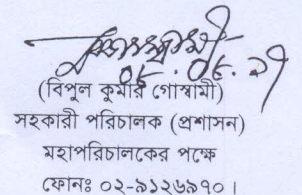 ০৫.০৫.১১
(বিপুল কুমার গোস্বামী)
সহকারী পরিচালক (প্রশাসন)
মহাপরিচালকের পক্ষে
ফোনঃ ০২-৯১২৬৯৭০।